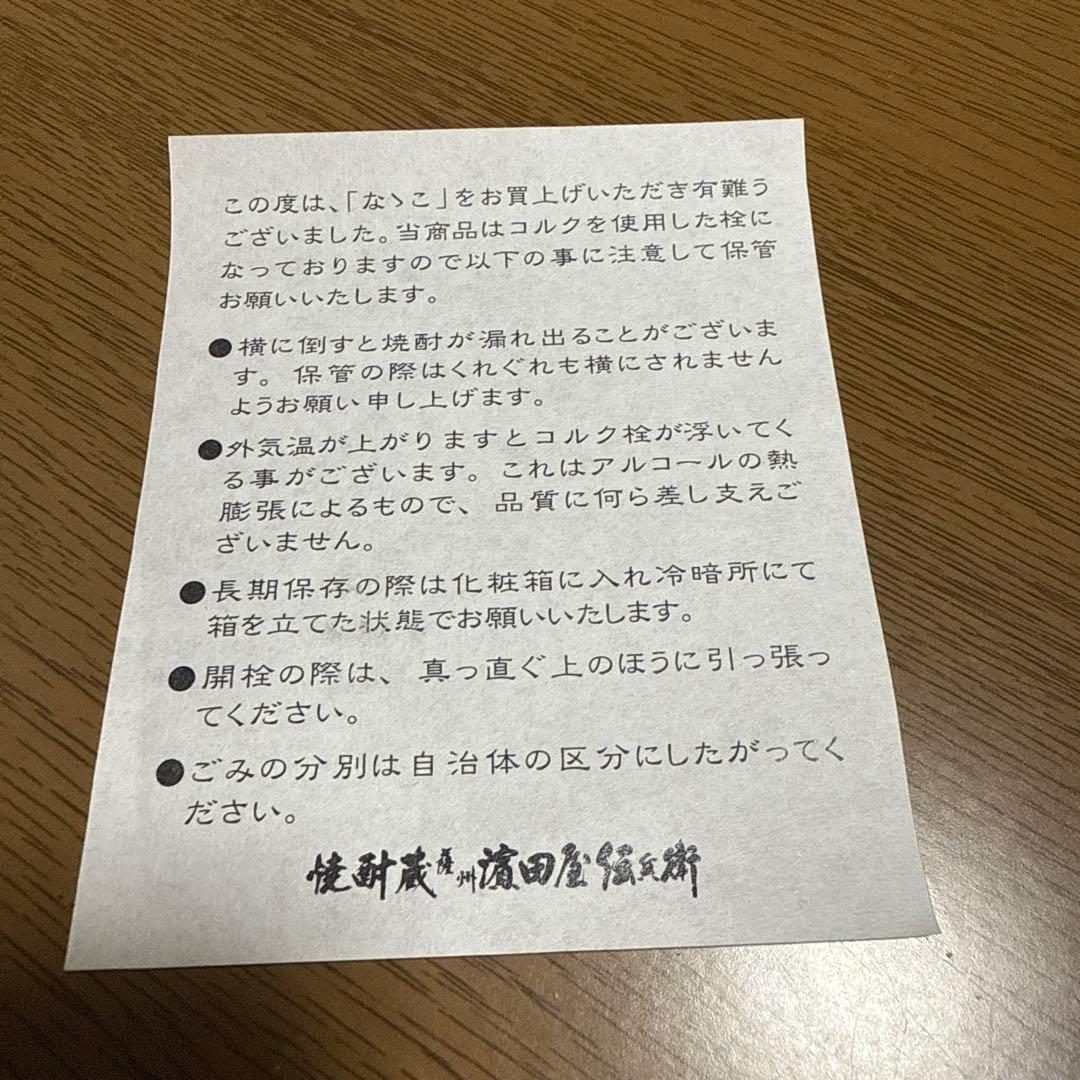 この度は、「なゝこ」をお買上げいただき有難う
ございました。当商品はコルクを使用した栓に
なっておりますので以下の事に注意して保管
お願いいたします。
●横に倒すと焼酎が漏れ出ることがございま
す。保管の際はくれぐれも横にされません
ようお願い申し上げます。
●外気温が上がりますとコルク栓が浮いてく
る事がございます。これはアルコールの熱
膨張によるもので、品質に何ら差し支えご
ざいません。
●長期保存の際は化粧箱に入れ冷暗所にて
箱を立てた状態でお願いいたします。
●開栓の際は、真っ直ぐ上のほうに引っ張っ
てください。
●ごみの分別は自治体の区分にしたがってく
ださい。
焼酎蔵薩州濵田屋伝兵衛